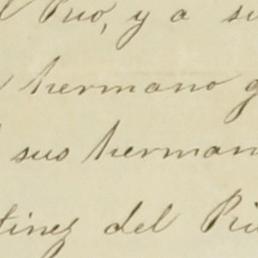 Pio, y a su
hermano
sus herman
tinez del Pi